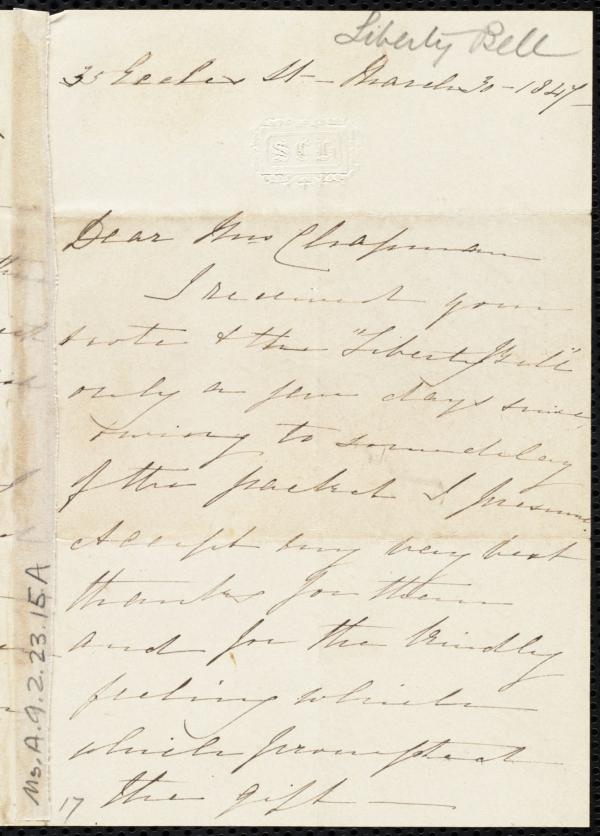 Liberty Bell
35 Eccles St - March 30 - 1847 -
S C L
Dear Mrs Chapman
I received your
note & the "Liberty Bell"
only a few days since,
owing to some delay
of the packet I presume.
Accept my very best
thanks for them
and for the kindly
feeling which
which prompted
the gift —
17
Ms. A. 9. 2. 23. 15 A